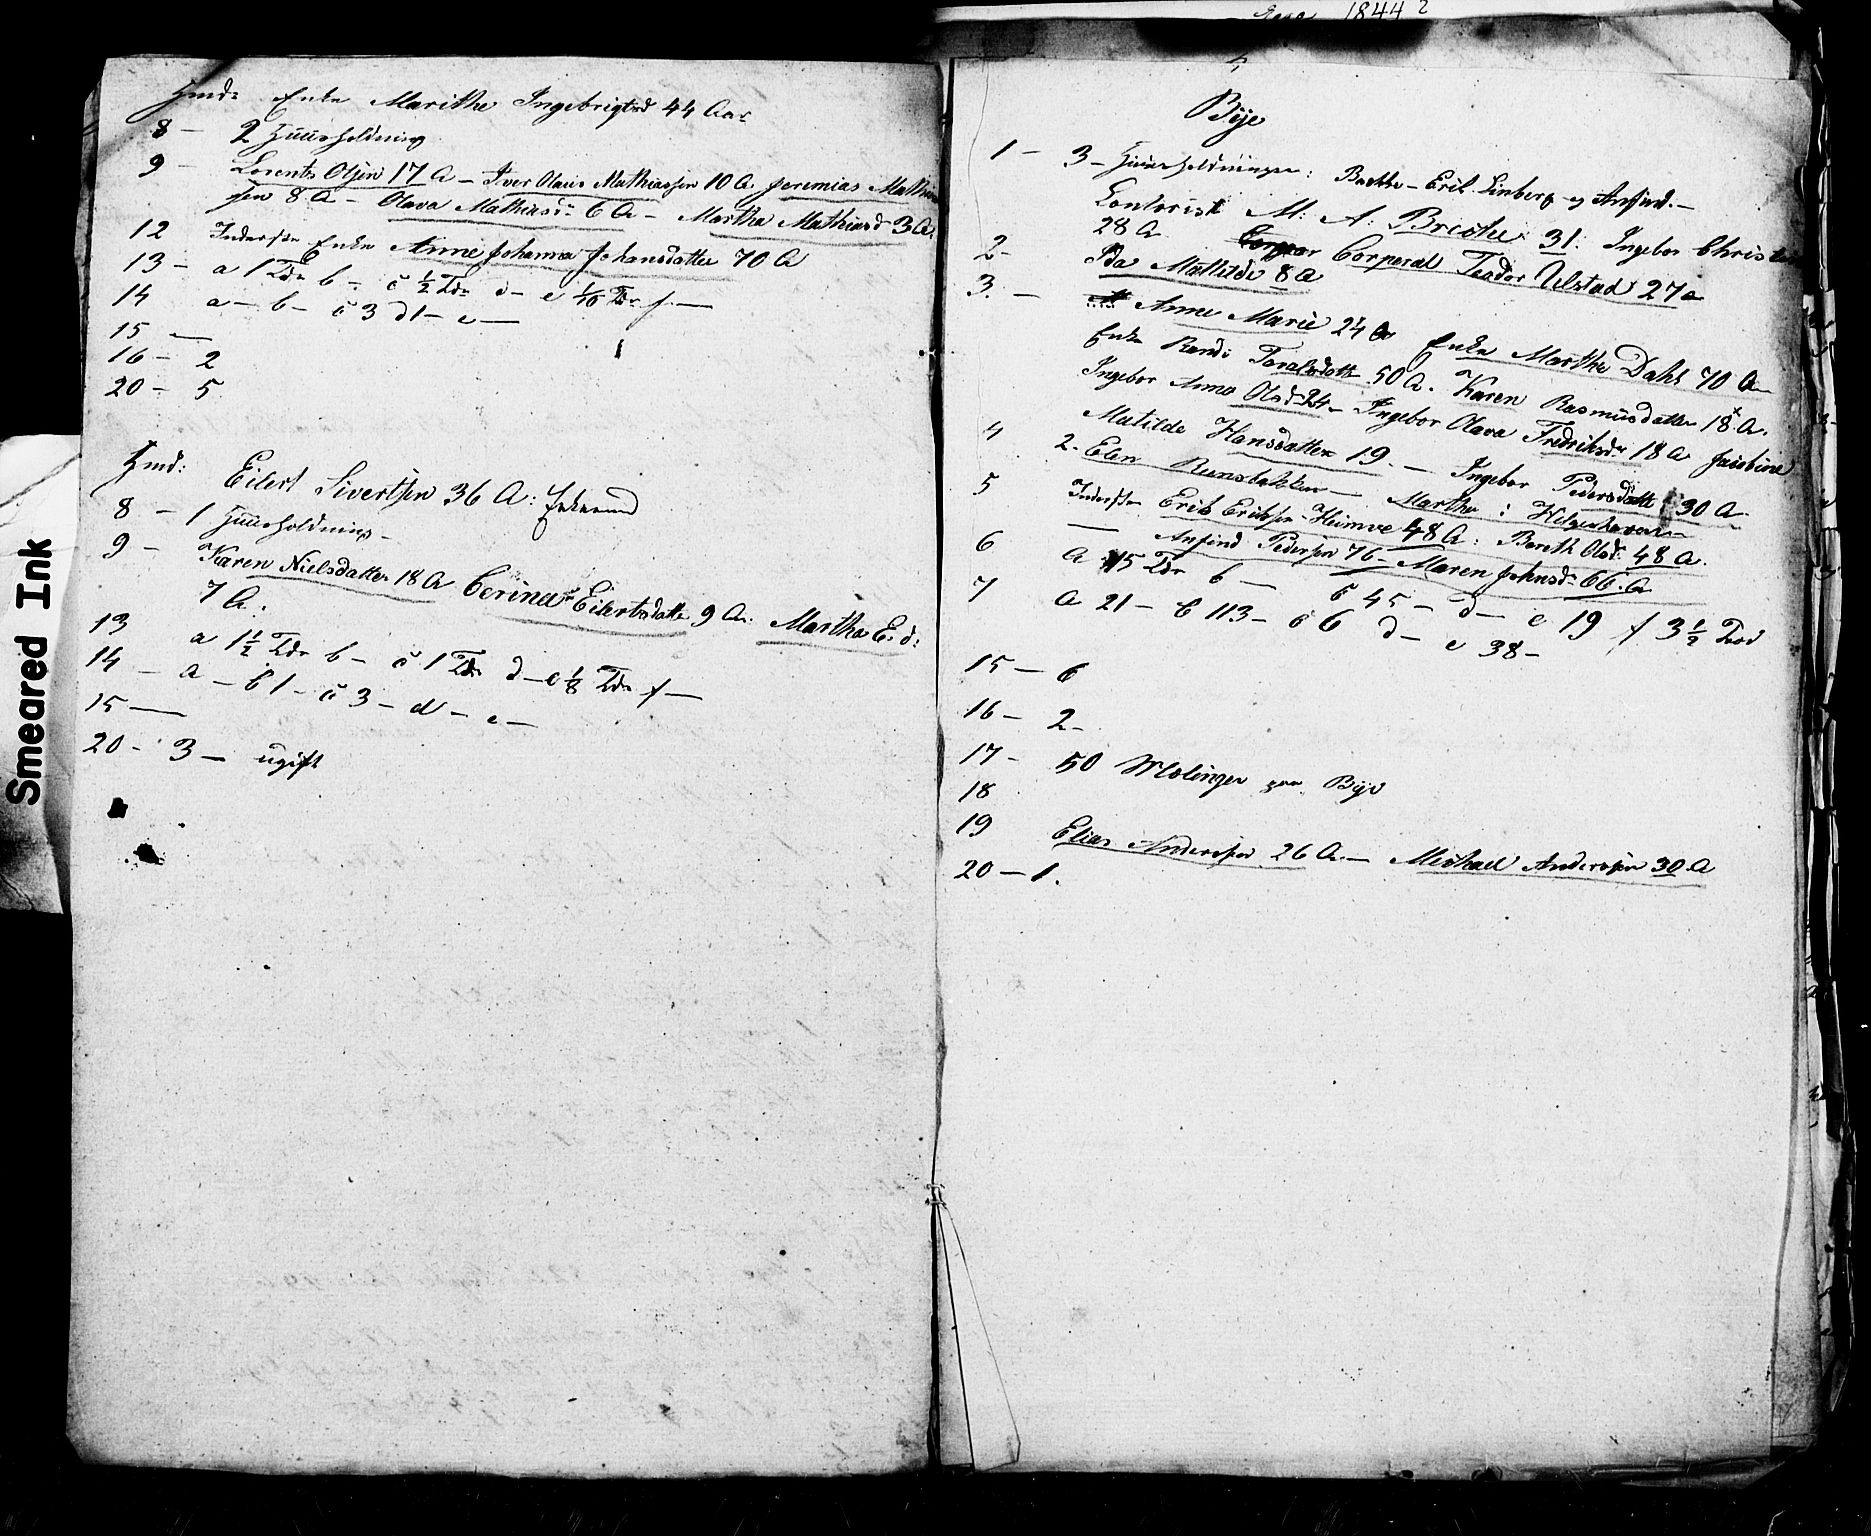 Hmd: Enke Marithe Ingebrigtsd 44 Aar
8 – 2 Huusholdning
9 – Lorents Olsen 17 A – Iver Olaus Mathiassen 10 A. Jeremias Mathias
sen 8 A – Olava Mathiasd: 6 A – Martha Mathiasd 3 A.
12 Inderste Enke Anne Johanna Johansdatter 70 A
13 – a 1 Tdr b – c 1/2 Tdr d – e 1/10 Tdr f –
14 a – b – c 3 d 1 – e –
15 –
16 – 2
20 – 5
Hmd: Eilert Sivertsen 36 A: Enkemand
8 – 1 Huusholdning –
9 – Karen Nielsdatter 18 A Cerina Eilertsdatter 9 A: Martha E. d:
7 A.
13 a 1 1/2 Tdr b – c 1 Tdr d – e 1/8 Tdr f –
14 – a – b 1 – c 3 – d – e –
15 –
20 – 3 – ugift
Smeared Ink
1844 ?
Bye
1 – 3 – Huusholdninger: – Erik Linberg og Anfind. –
Contorist M: A: Brethe 31: Ingebor Christi
28 A
2 – Corperal Teodor Ulstad 27 a
Ida Mathilde 8 A
3. – Anne Marie 24 A Enke Marthe Dahl 70 A
Enke Randi 50 A. Karen Rasmusdatter 18 A.
Ingebor Anna Olsd 24 – Ingebor Olava Fredriksdr 18 A Jacobine
Matilde Hansdatter 19. – Ingebor Pedersdatter 30 A
4 2. Elen – Martha :
5 Inderster Erik Eriksen Heimve 48 A: Bereth Olsd: 48 A.
— Anfind Pedersen 76 – Maren Johnsdr 66. A
6 A 15 Tdr b – c 45 – d – e 19 f 3 1/2
7 a 21 – b 113 – c 6 d – e 38 –
15 – 6
16 – 2 –
17 – 50 Mælinger paa Bye
18
19 Elias Anderssen 26 A. – Michael Anderssen 30 A
20 – 1.